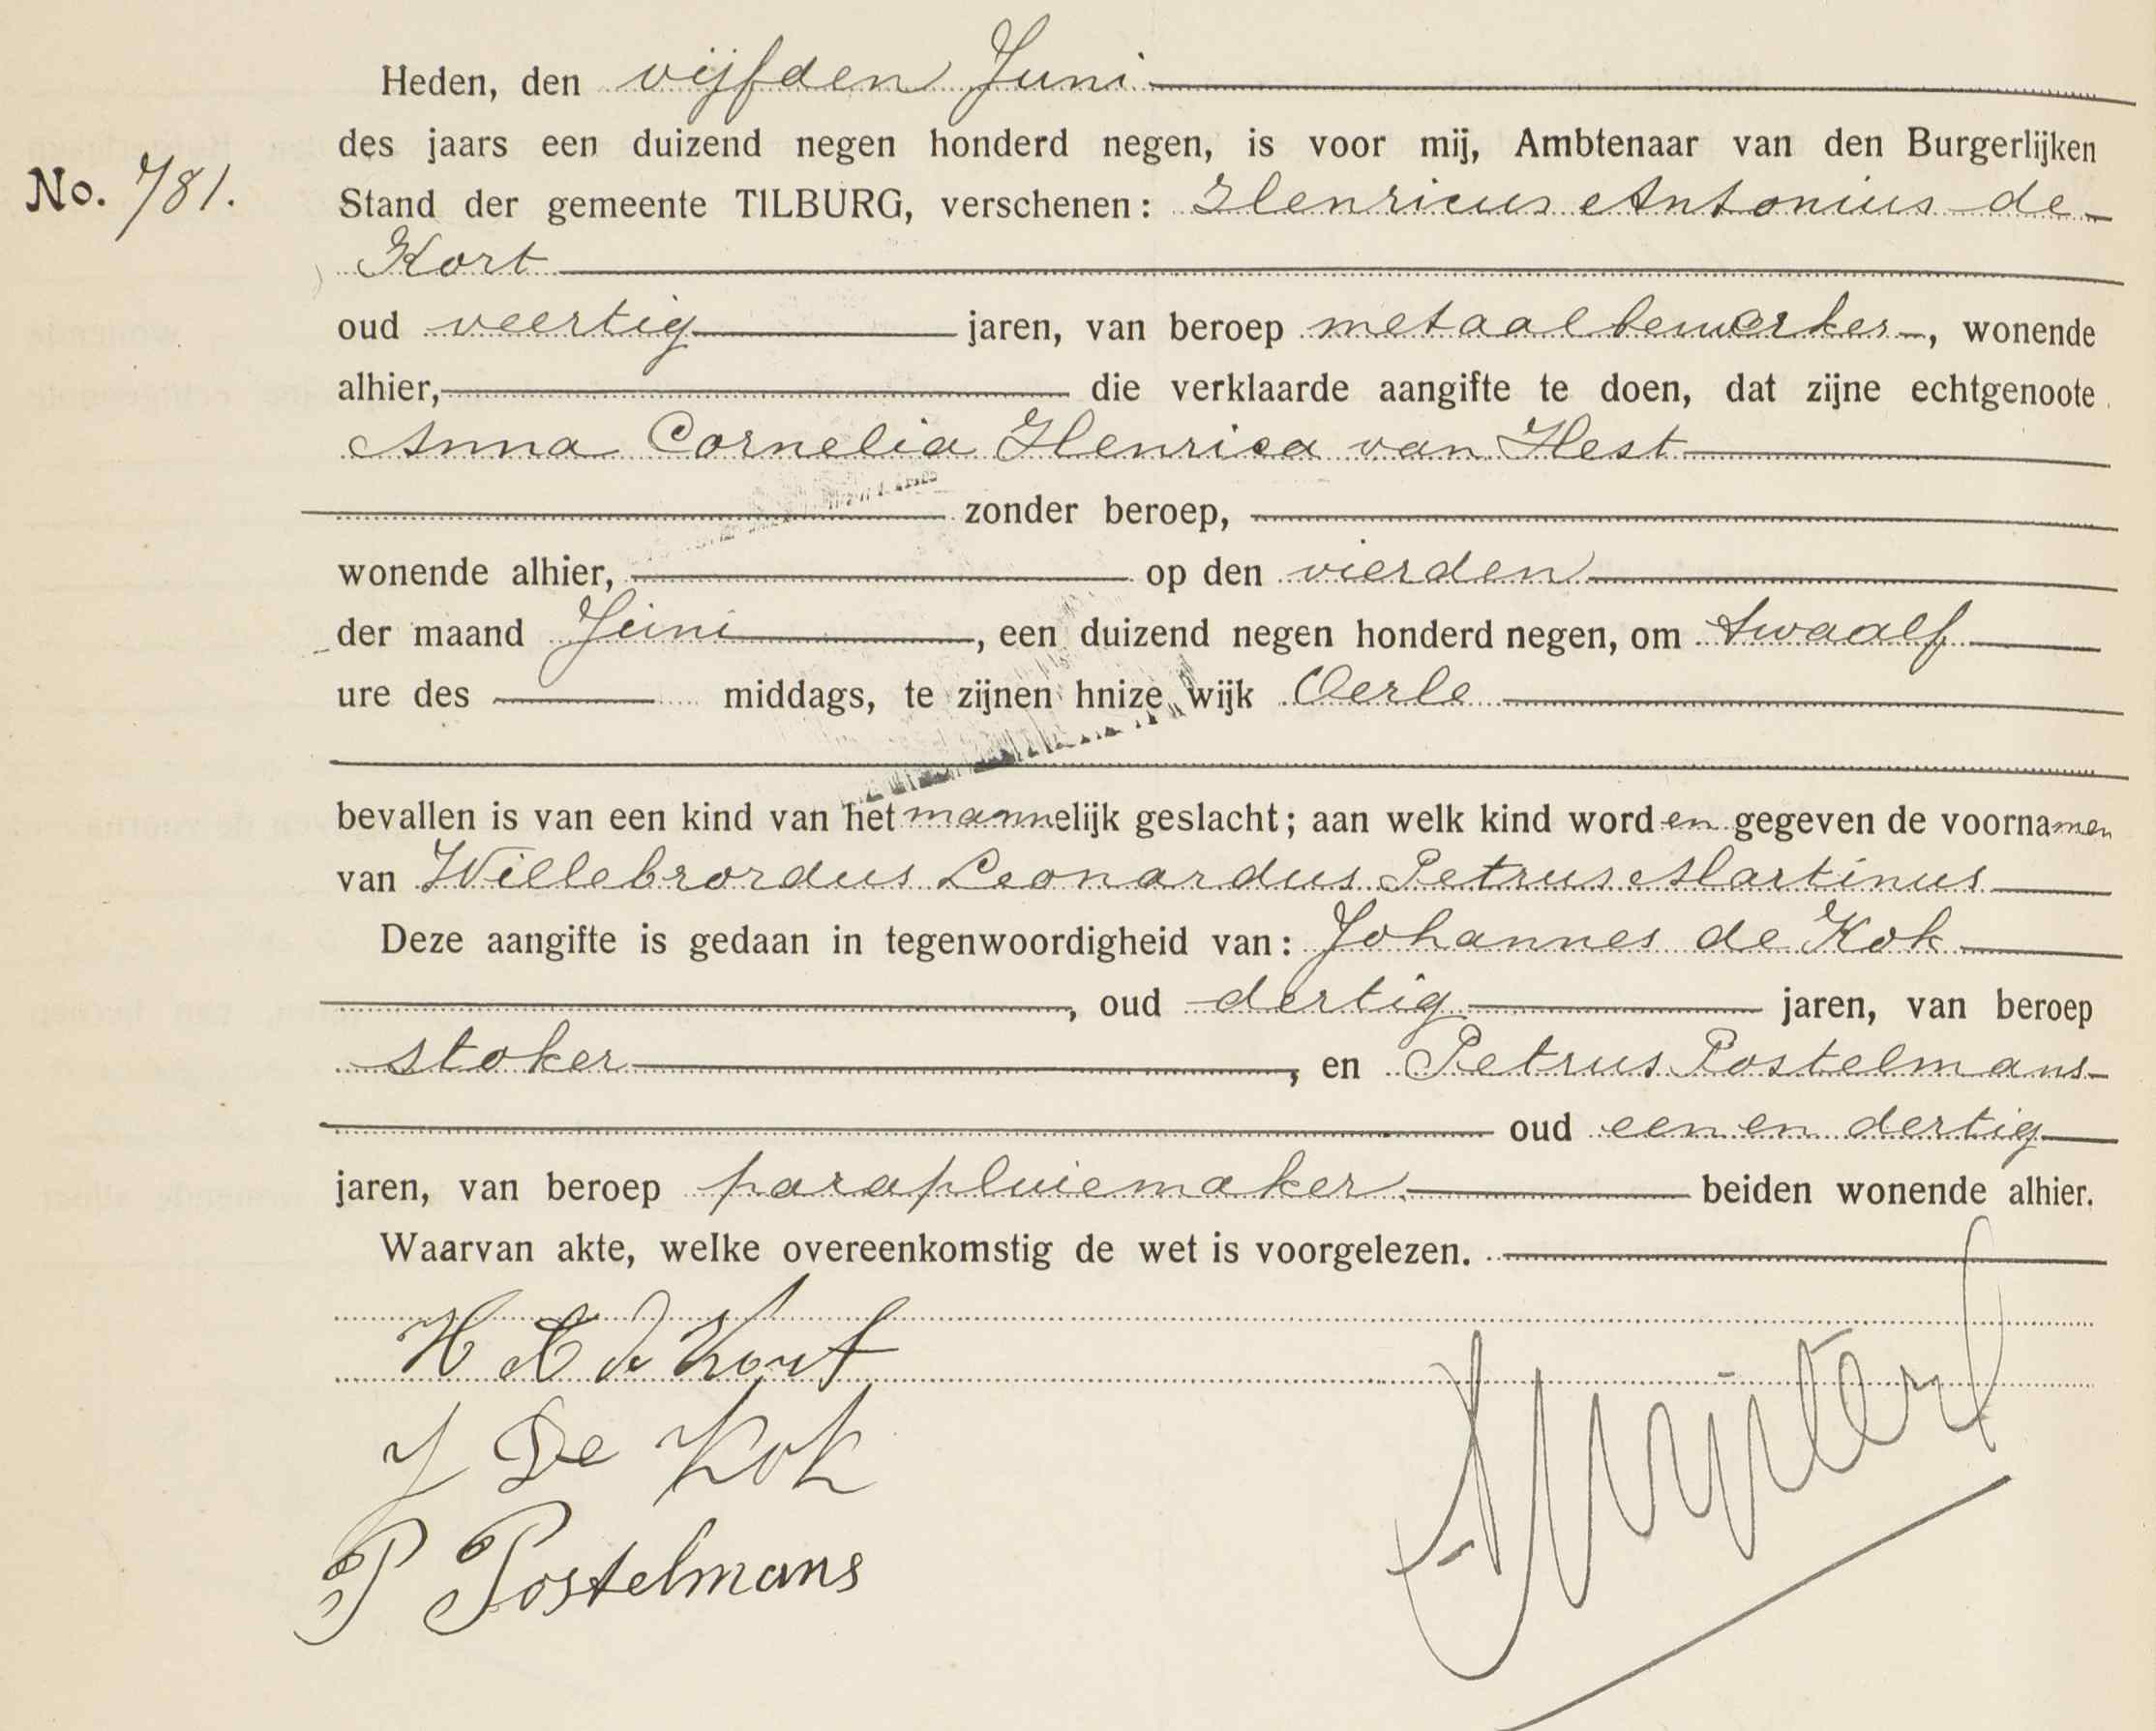 Heden, den vijfden Juni
des jaars een duizend negen honderd negen, is voor mij, Ambtenaar van den Burgerlijken
No. 781.
Stand der gemeente TILBURG, verschenen: Henricus Antonius de
Kort
oud veertig jaren, van beroep metaalbewerker, wonende
alhier, die verklaarde aangifte te doen, dat zijne echtgenoote
Anna Cornelia Henrica van Hest
zonder beroep,
wonende alhier, op den vierden
der maand Juni, een duizend negen honderd negen, om twaalf
ure des middags, te zijnen hnize wijk Oerle
bevallen is van een kind van het mannelijk geslacht; aan welk kind worden gegeven de voornamen
van Willebrordus Leonardus Petrus Martinus
Deze aangifte is gedaan in tegenwoordigheid van: Johannes de Kok
, oud dertig jaren, van beroep
stoker, en Petrus Postelmans
oud een en dertig
jaren, van beroep parapluiemaker beiden wonende alhier.
Waarvan akte, welke overeenkomstig de wet is voorgelezen.
H A de Kort
J De Kok
P Postelmans